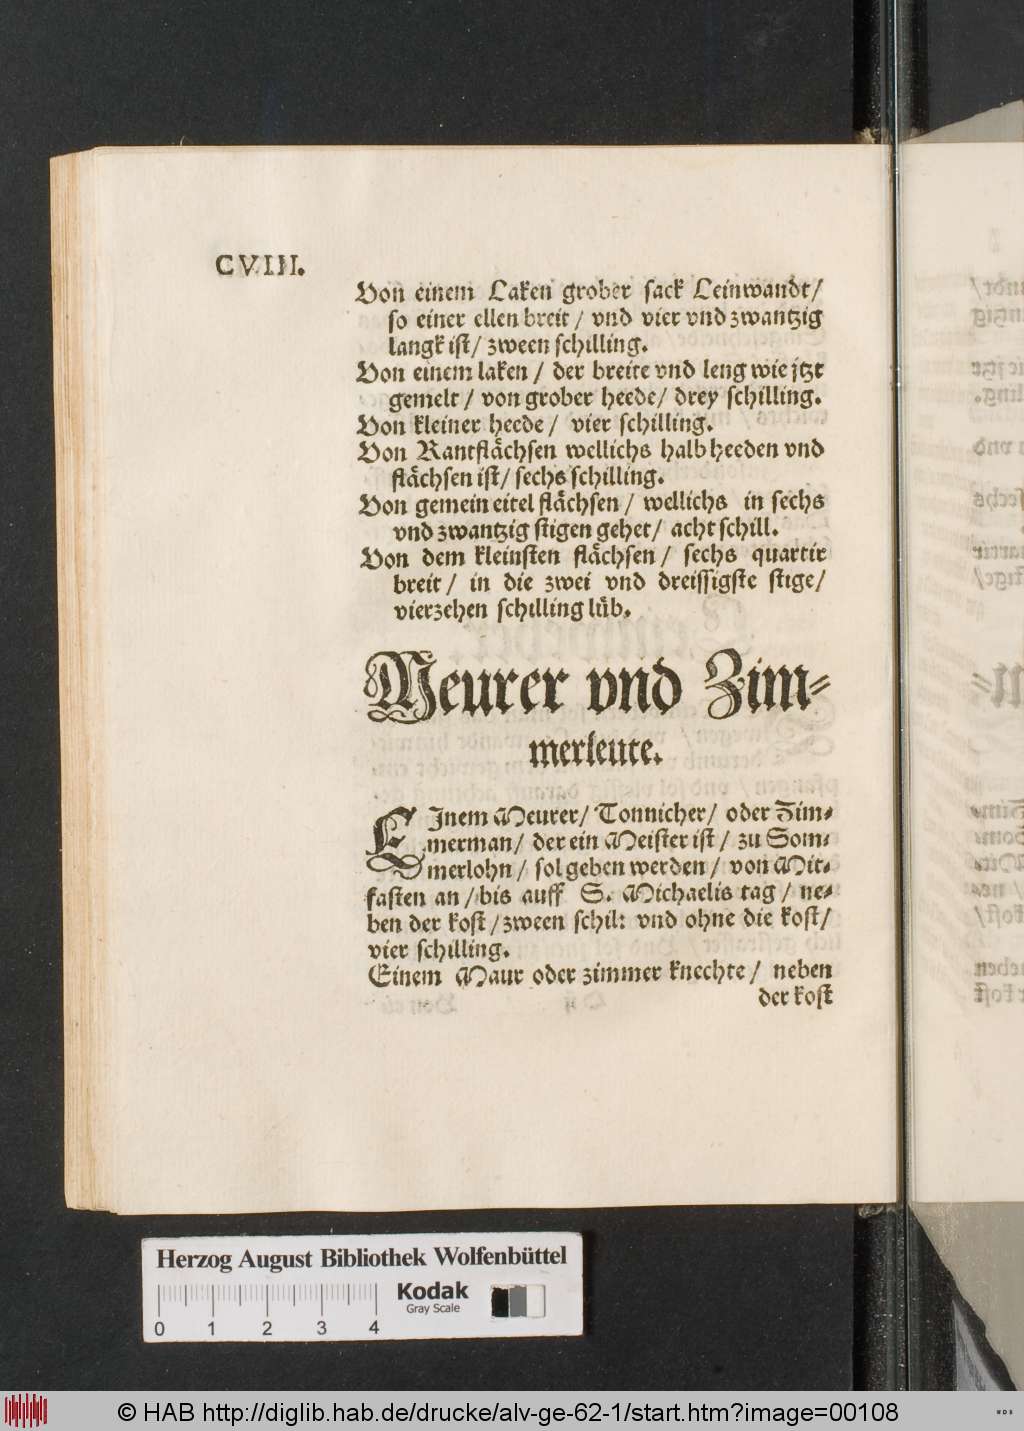 CVIII.
Von einem Laken grober sack Leinwandt/
so einer ellen breit / vnd vier vnd zwantzig
langk ist/ zween schilling.
Von einem laken / der breite vnd leng wie jtzt
gemelt / von grober heede/ drey schilling.
Von kleiner heede / vier schilling.
Von Rantflächsen wellichs halb heeden vnd
flächsen ist/ sechs schilling.
Von gemein eitel flächsen / wellichs in sechs
vnd zwantzig stigen gehet/ acht schill.
Von dem kleinsten flächsen / sechs quartir
breit / in die zwei vnd dreissigste stige/
vierzehen schilling lüb.
Meurer vnd Zim-
merleute.
EInem Meurer/ Tonnicher/ oder Zim-
merman/ der ein Meister ist / zu Som-
merlohn / sol geben werden / von Mit-
fasten an / bis auff S. Michaelis tag / ne-
ben der kost / zween schil: vnd ohne die kost/
vier schilling.
Einem Maur oder zimmer knechte / neben
der kost
Herzog August Bibliothek Wolfenbüttel
Kodak
Gray Scale
0 1 2 3 4
© HAB http://diglib.hab.de/drucke/alv-ge-62-1/start.htm?image=00108